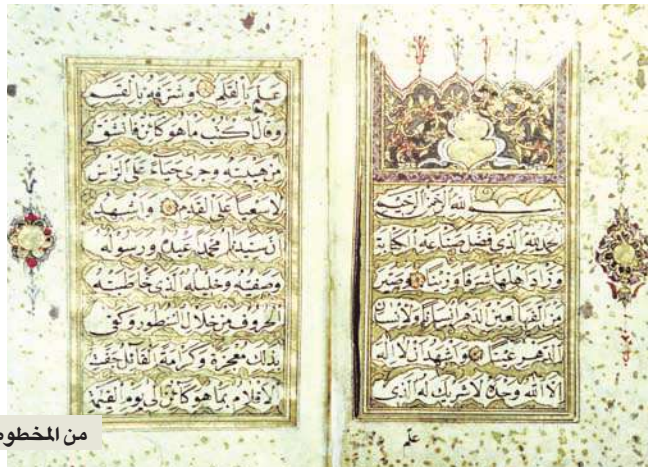 بسم الله الرحمن الرحيم
الحمد لله الذى فضل صناعة الكتابة
وزاد اهلها شرفا وزينا وصير
من القلم لعين الدهر انسانا ولانسان
الدهر عينا واشهد ان لا اله
الا الله وحده لا شريك له الذى
علم
علم بالقلم وشرفه بالقسم
وقال اكتب ما هو كائن فانشق
من هيبته وجرى حياء على الراس
لا سعيا على القدم واشهد
ان سيدنا محمدا عبده ورسوله
وصفيه وخليله الذى خاطبته
الحروف من خلال السطور وكفى
بذلك معجزة وكرامة القائل جفت
الاقلام بما هو كائن الى يوم القيمة
من المخطو